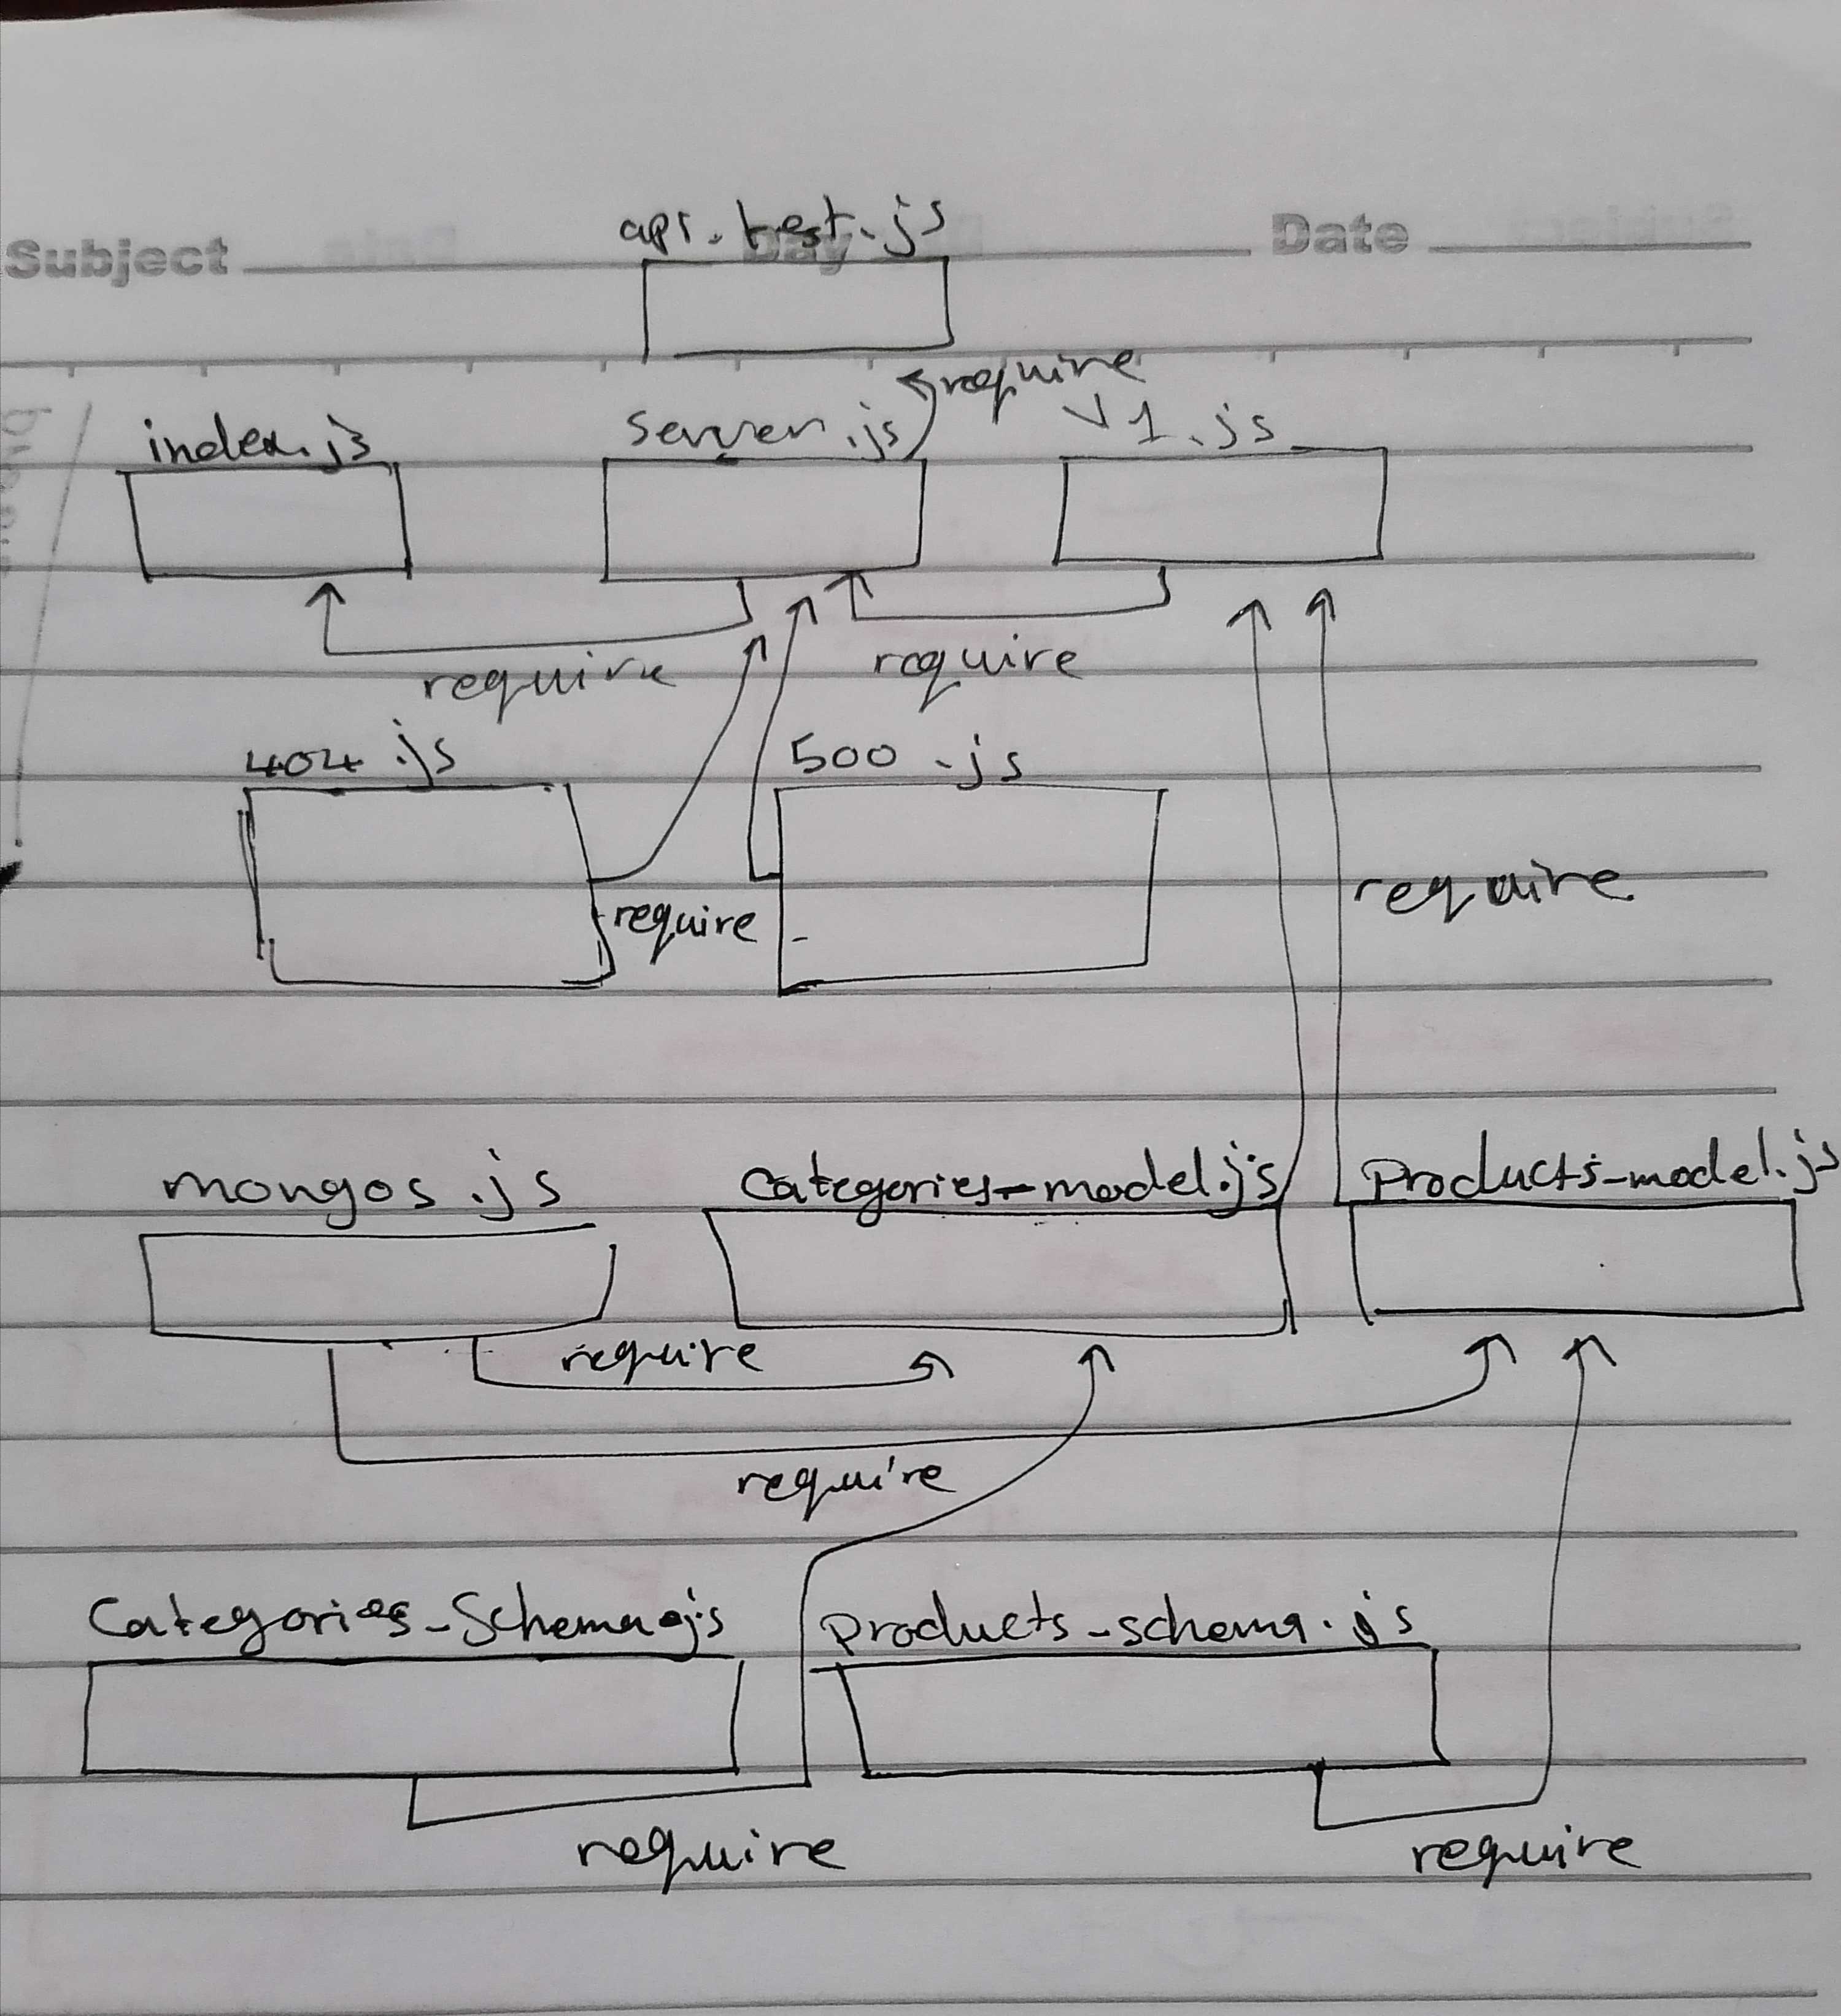 api.test.js
Subject Day Date
require
index.js server.js v1.js
require require
404.js 500.js
require
require
mongos.js Categories-model.js products-model.js
require
require
Categories-Schema.js products-schema.js
require require